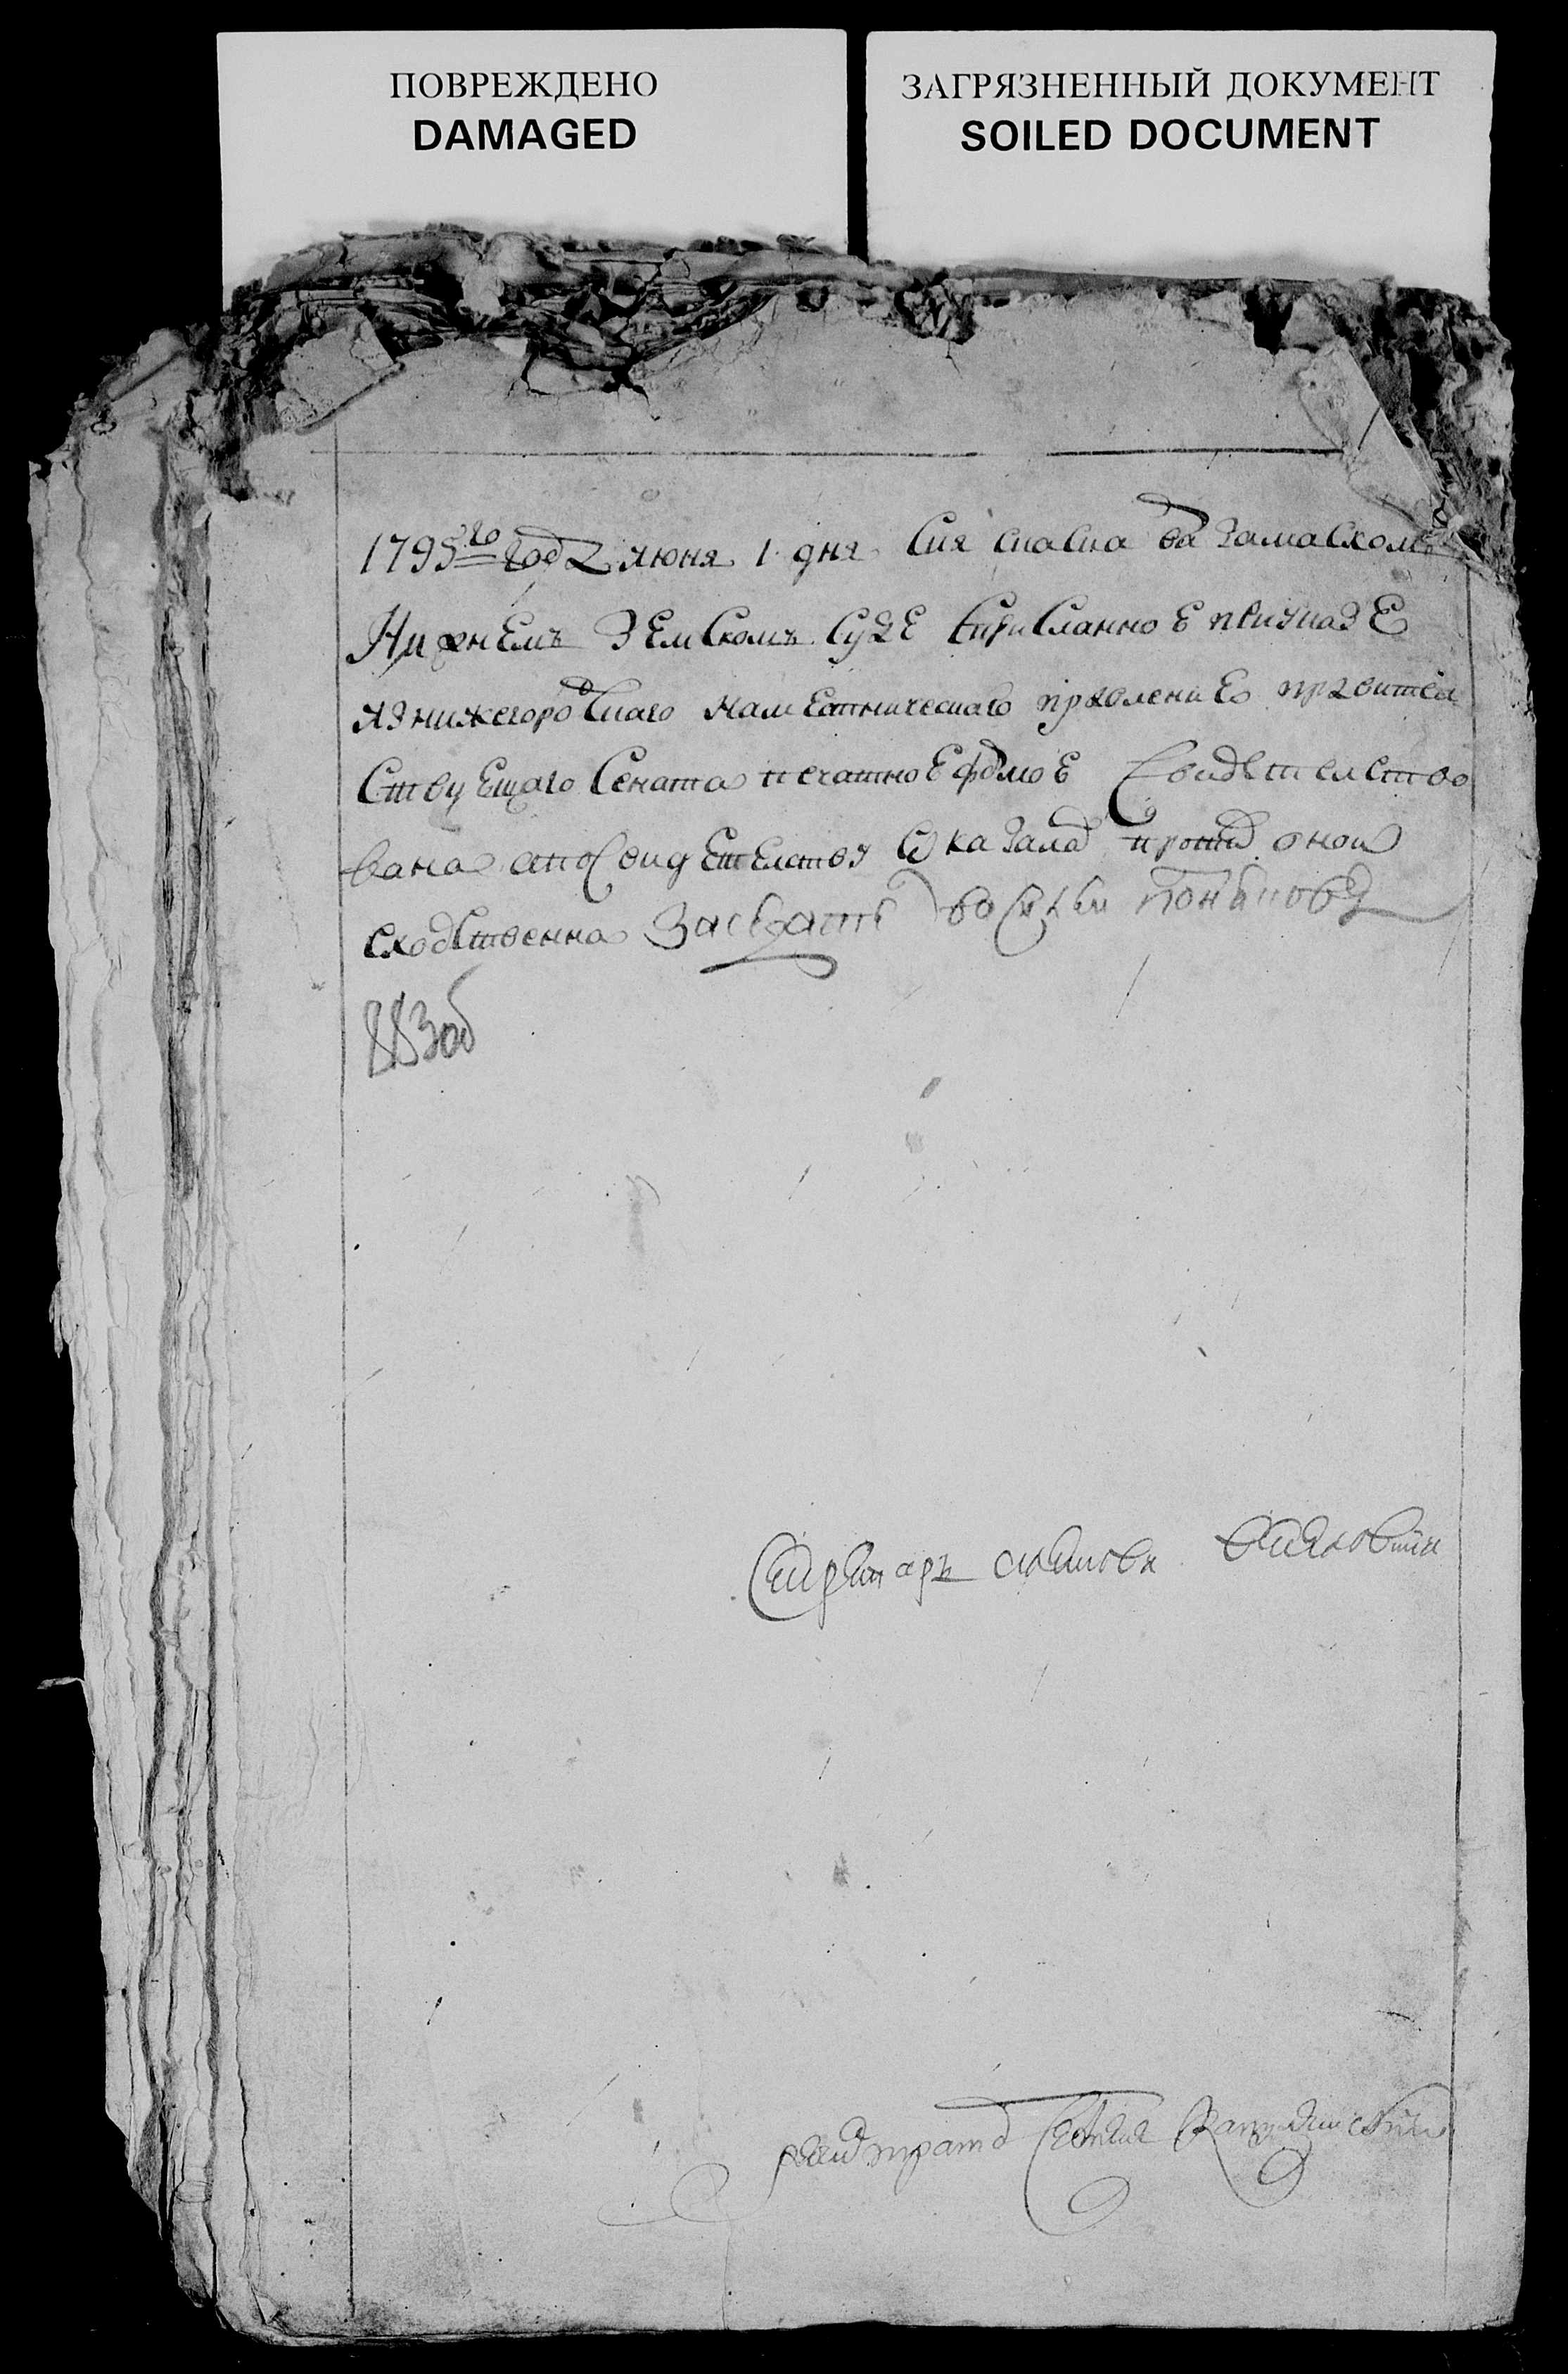 ПОВРЕЖДЕНО
DAMAGED
ЗАГРЯЗНЕННЫЙ ДОКУМЕНТ
SOILED DOCUMENT
1795го году июня 1 дня Сия сказка варзамасском
Нижнемъ Земскомъ Суде присланное приуказе
изнижегородскаго наместническаго правление правител
ствующаго Сената печатное форме Свидетелство
вана апосвидетелству оказалас против оной
сходственна Заседатель
883об
Секретарь
регистратор